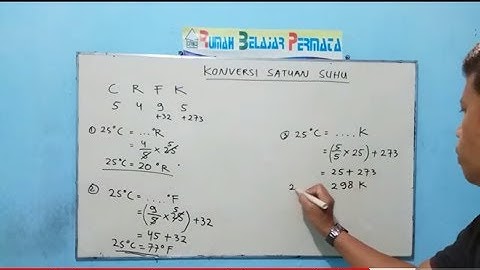 RUMAH BELAJAR PERMATA
KONVERSI SATUAN SUHU
C R F K
5 4 9 5
+32 +273
① 25°C = ...°R
= 4/5 × 25 5
25°C = 20°R
② 25°C = ....°F
= (9/5 × 25 5) + 32
= 45 + 32
25°C = 77°F
③ 25°C = .... K
= (5/5 × 25) + 273
= 25 + 273
2 298 K